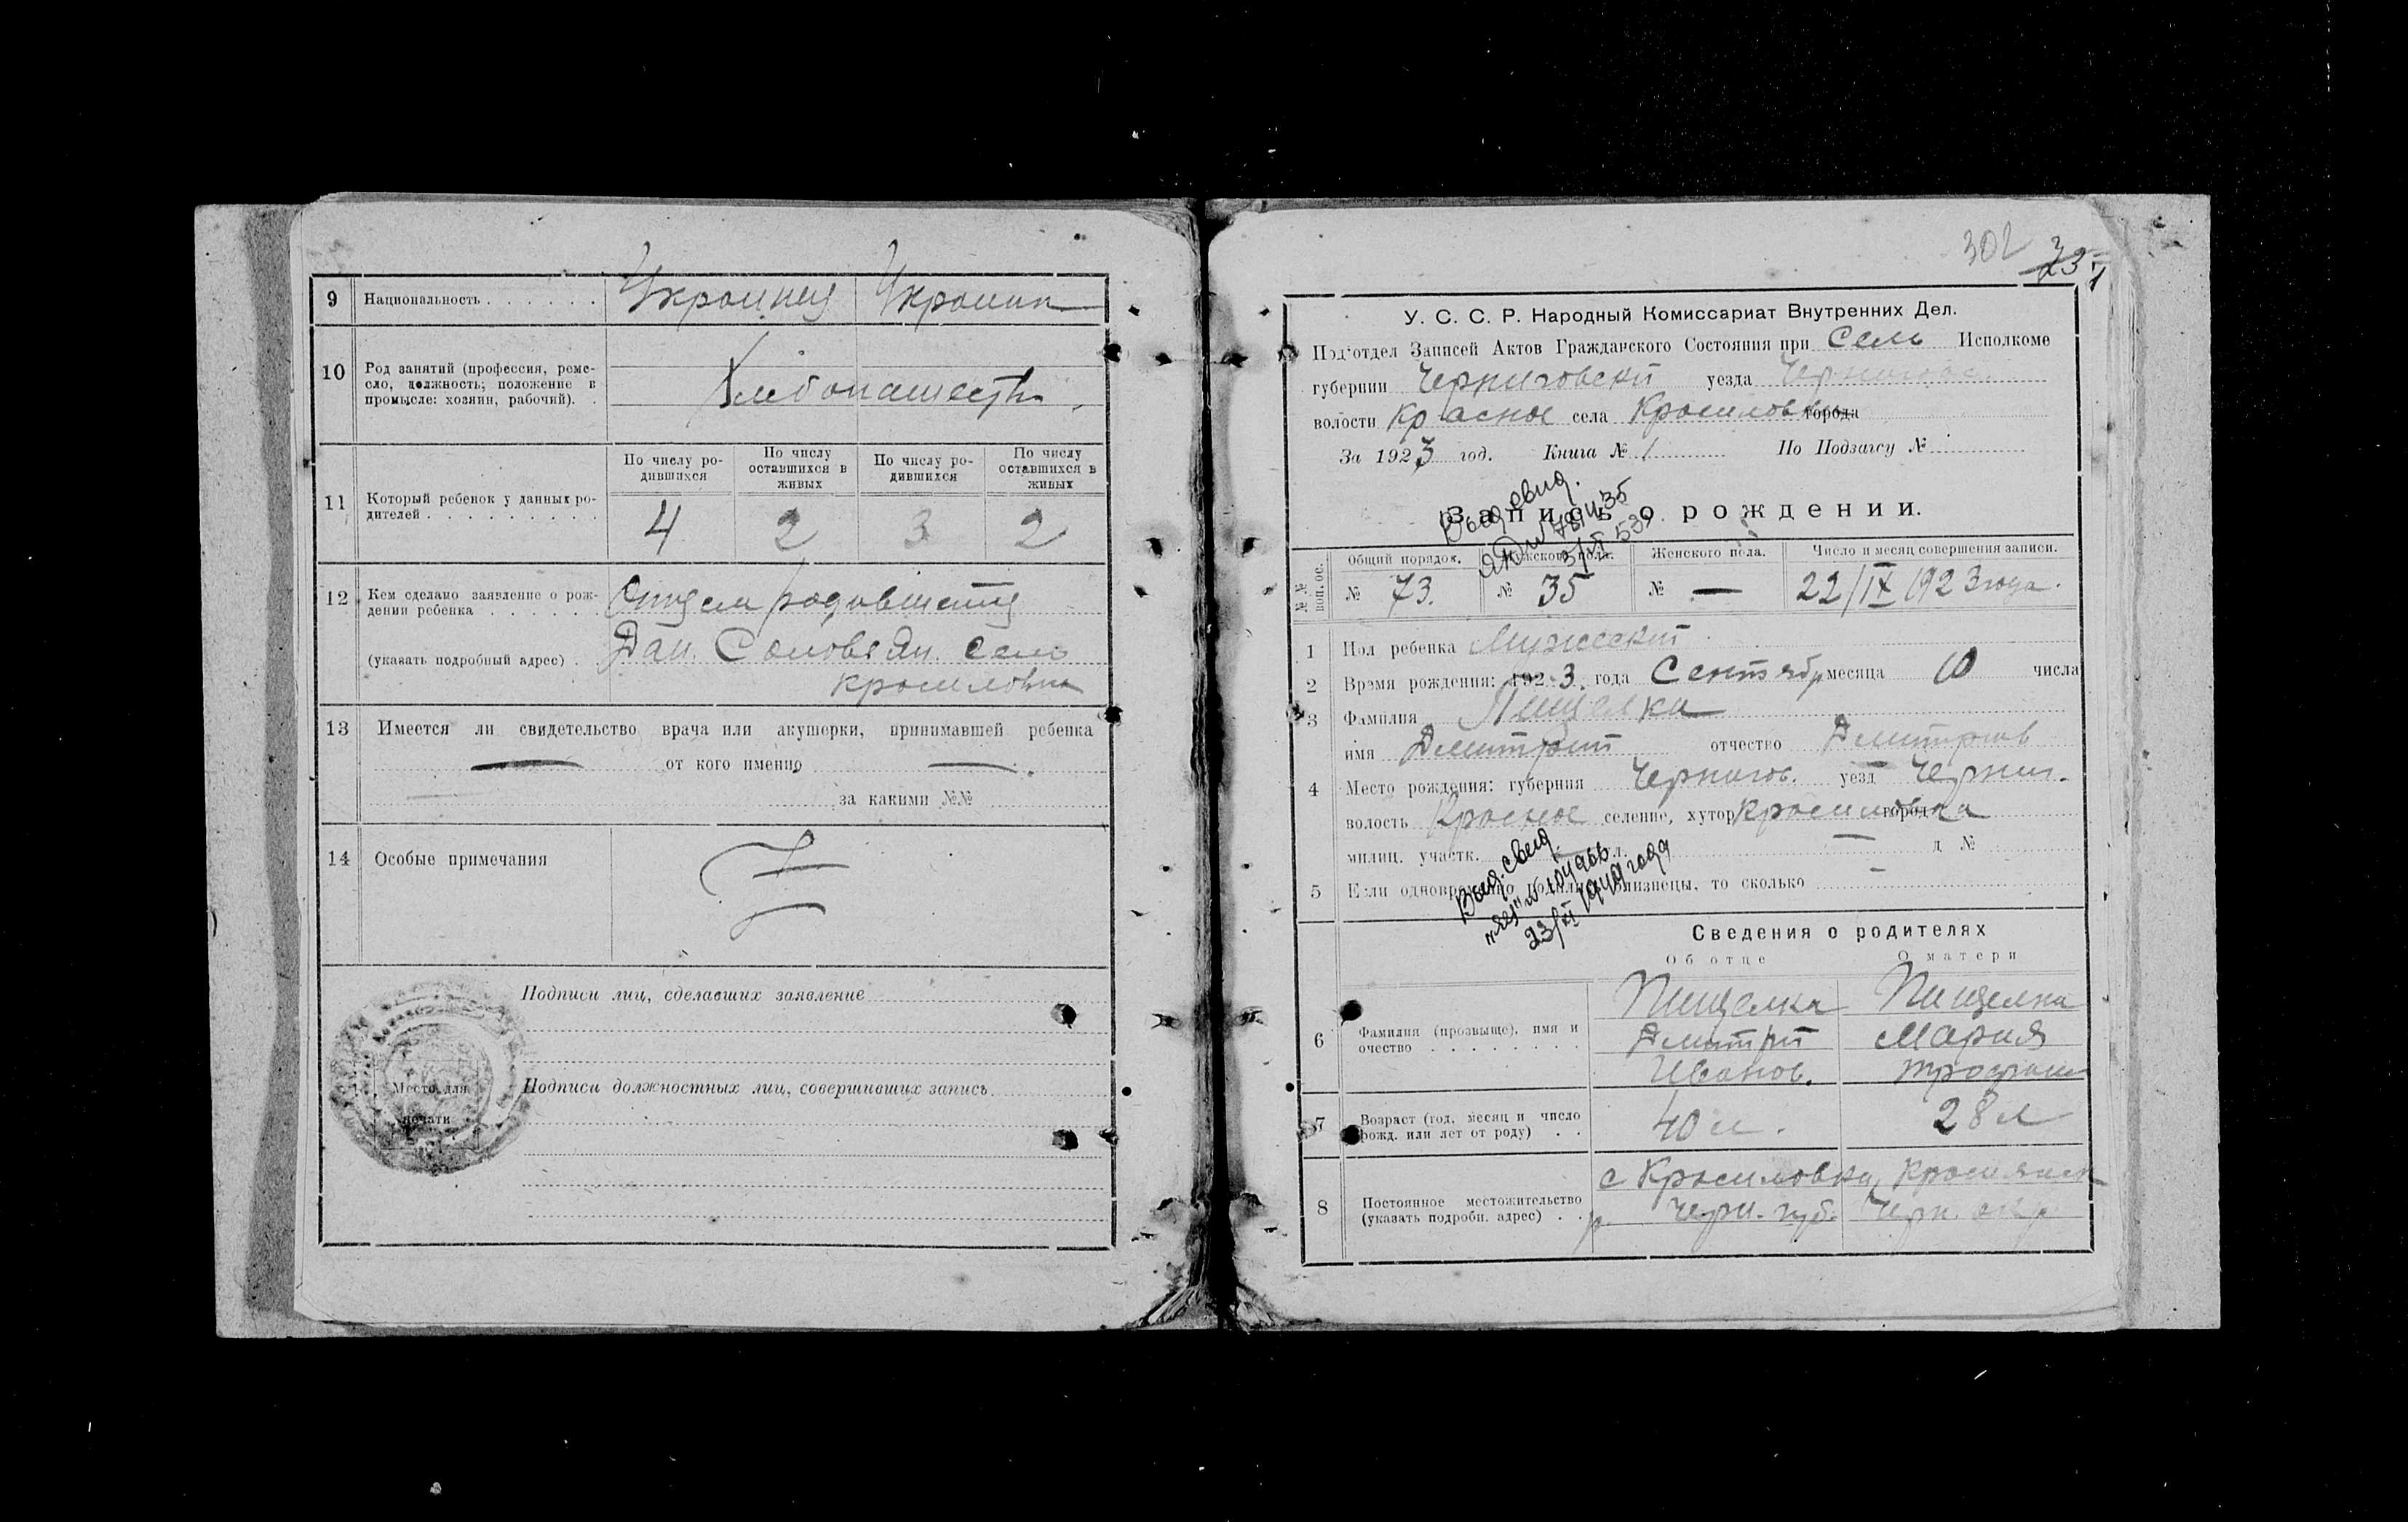 9 Национальность Украинец Украин
10 Род занятий (профессия, реме-
сло, должность; положение в
промысле: хозяин, рабочий).
Хлебопашество
По числу ро-
дившихся
По числу
оставшихся в
живых
По числу ро-
дившихся
По числу
оставшихся в
живых
11 Который ребенок у данных ро-
дителей
4 2 3 2
12 Кем сделано заявление о рож-
дении ребенка
(указать подробный адрес)
Отцем
село
Красиловка
13 Имеется ли свидетельство врача или акушерки, принимавшей ребенка
— от кого именно —
за какими №№
14 Особые примечания
Подписи лиц, сделавших заявление
Место для
печати
Подписи должностных лиц, совершивших запись
302
У. С. С. Р. Народный Комиссариат Внутренних Дел.
Под'отдел Записей Актов Гражданского Состояния при Сель Исполкоме
губернии Черниговский уезда Черниговс.
волости Красное села Красиловки города
За 1923 год. Книга № 1 По Подзагсу №
Запись о рождении.
№№ воп. ос.
Общий порядок. Мужского пола. Женского пола. Число и месяц совершения записи.
№ 73. № 35 № — 22/IX 1923 года.
1 Пол ребенка Мужский
2 Время рождения: 1923. года Сентябр месяца 10 числа
3 Фамилия Пищелка
имя Дмитрий отчество Дмитриев
4 Место рождения: губерния Чернигов. уезд Черниг.
волость Красное селение, хутор Красиловка город
милиц. участк. — д №
5 Если одновременно родились близнецы, то сколько —
Выд. свид.
23/XI 1949 года
Сведения о родителях
Об отце О матери
6 Фамилия (прозвыще), имя и
очество
Пищелка Пищелка
Дмитрий Мария
Иванов. Трофим
7 Возраст (год, месяц и число
рожд. или лет от роду)
40 л. 28 л
8 Постоянное местожительство
(указать подробн. адрес)
с Красиловка, Краснянск
р. Черн. губ. Черн. окр